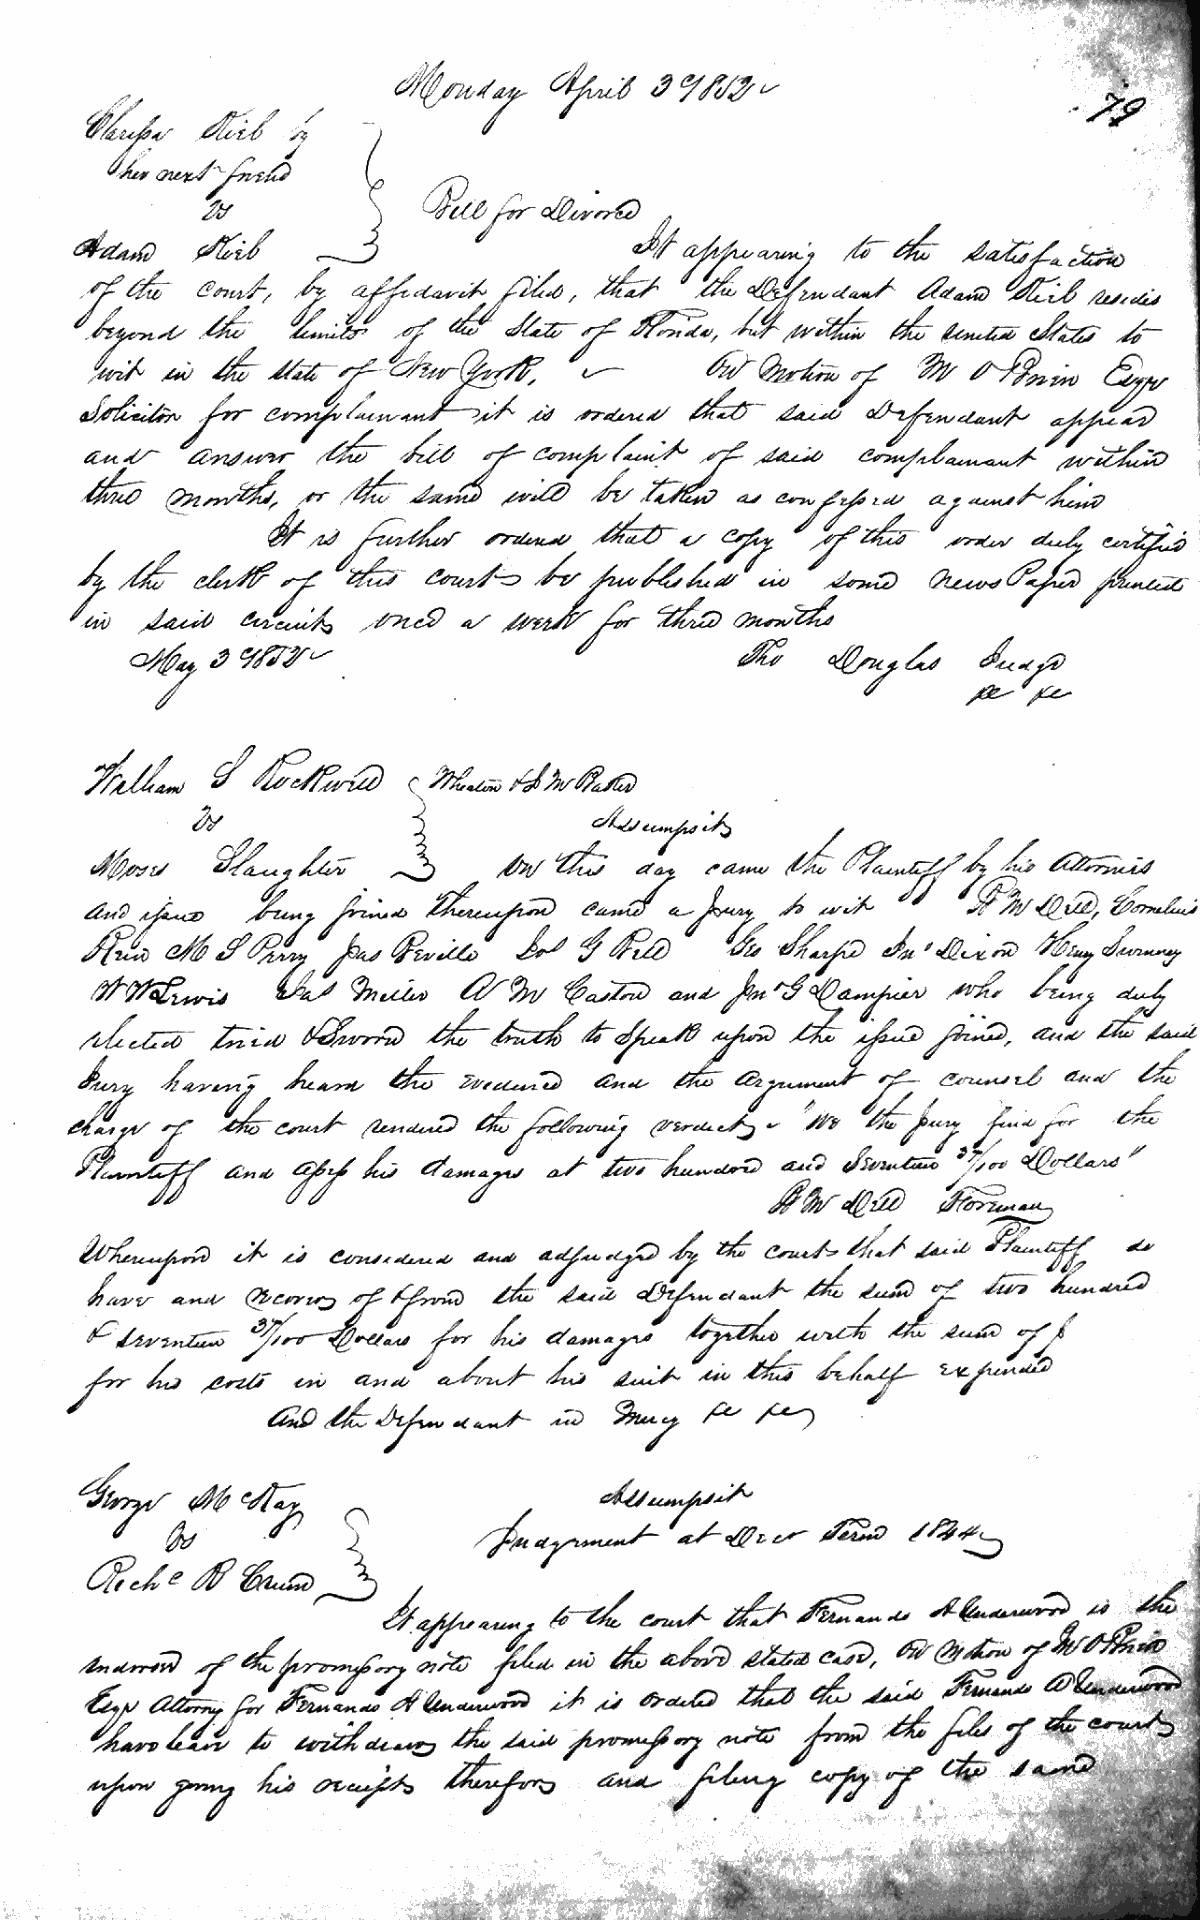 Monday April 3d 1852
79
Clarissa Kieb by
her next friend
vs
Bill for Divorce
Adam Kieb
It appearing to the satisfaction
of the court, by affidavit filed, that the Defendant Adam Kieb resides
beyond the limits of the State of Florida, but within the United States to
wit in the state of New York. On Motion of M Esqr
Solicitor for complainant it is ordered that said Defendant appear
and answer the bill of complaint of said complainant within
three months, or the same will be taken as confessed against him
It is further ordered that a copy of this order duly certified
by the clerk of this court be published in some newsPaper printed
in said circuit once a week for three months
May 3d 1852
Tho Douglas Judge
&c &c
William S Rockwell
Wheaton & J M Baker
vs
Assumpsit
Moses Slaughter
On this day came the Plaintiff by his Attornies
and issue being joined Thereupon came a Jury to wit P M Dell, Cornelius
Rein M S Perry Jas Beville G Bell Geo Sharpe Jno Dixon Henry Swinney
W W Lewis Jas Miller A M Caston and Jno G Dampier who being duly
elected tried & Sworn the truth to Speak upon the issue joined, and the said
Jury having heard the evidence and the argument of counsel and the
charge of the court rendered the following verdict "We the Jury find for the
Plaintiff and assess his damages at two hundred and Seventeen 37/100 Dollars"
P M Dell Foreman
Whereupon it is considered and adjudged by the court that said Plaintiff do
have and recover of & from the said Defendant the sum of two hundred
& seventeen 37/100 Dollars for his damages together with the sum of $
for his costs in and about his suit in this behalf expended
And the Defendant in Mercy &c &c
George McKay
Assumpsit
vs
Judgement at Decr Term 1844
Richd B Crum
It appearing to the court that Fernando A Underwood is the
endorser of the promissory note filed in the above stated case, On Motion of
Esqr Attorney for Fernando A Underwood it is ordered that the said Fernando A Underwood
have leave to withdraw the said promissory note from the files of the court
upon giving his receipt therefor and filing copy of the same